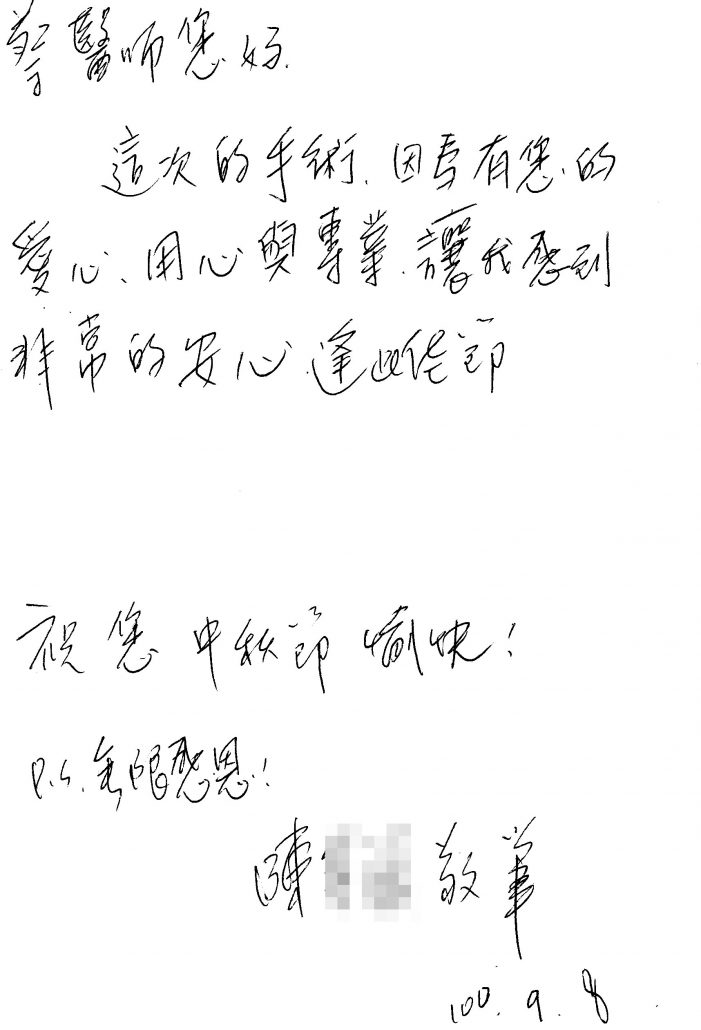 醫師您好.
這次的手術.因為有您.的
愛心、用心與專業.讓我感到
非常的安心.逢此佳節
祝您 中秋節 愉快!
P.S.無限感恩!
陳 敬筆
100.9.8